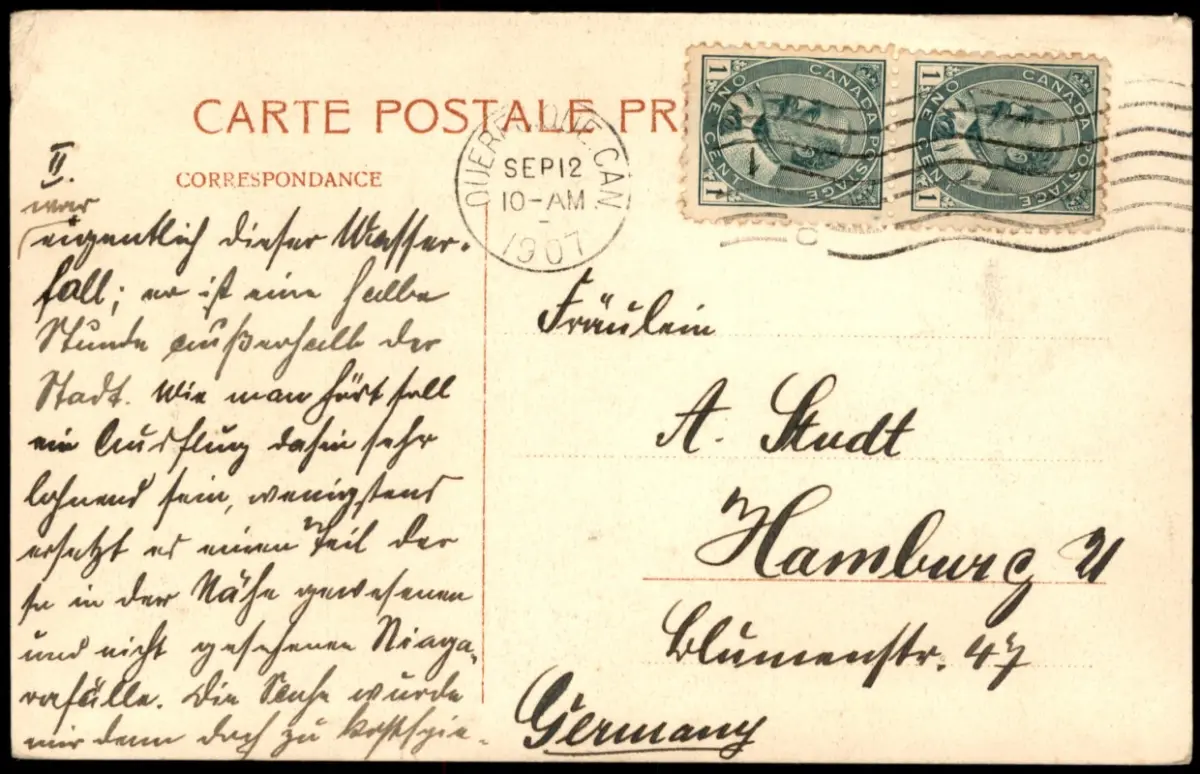 CARTE POSTALE PR
CORRESPONDANCE
QUEBEC. QUE. CAN.
SEP 12
10-AM
1907
CANADA POSTAGE
ONE CENT
1 1
CANADA POSTAGE
ONE CENT
1 1
II.
war
eigentlich dieser Wasser-
fall; er ist eine halbe
Stunde außerhalb der
Stadt. Wie man hört soll
ein Ausflug dahin sehr
lohnend sein, wenigstens
ersetzt es einen Teil der
so in der Nähe gewesenen
und nicht gesehenen Niaga-
rafälle. Die Sache wurde
mir denn doch zu kostspie-
Fräulein
A. Studt
Hamburg 21
Blumenstr. 47
Germany